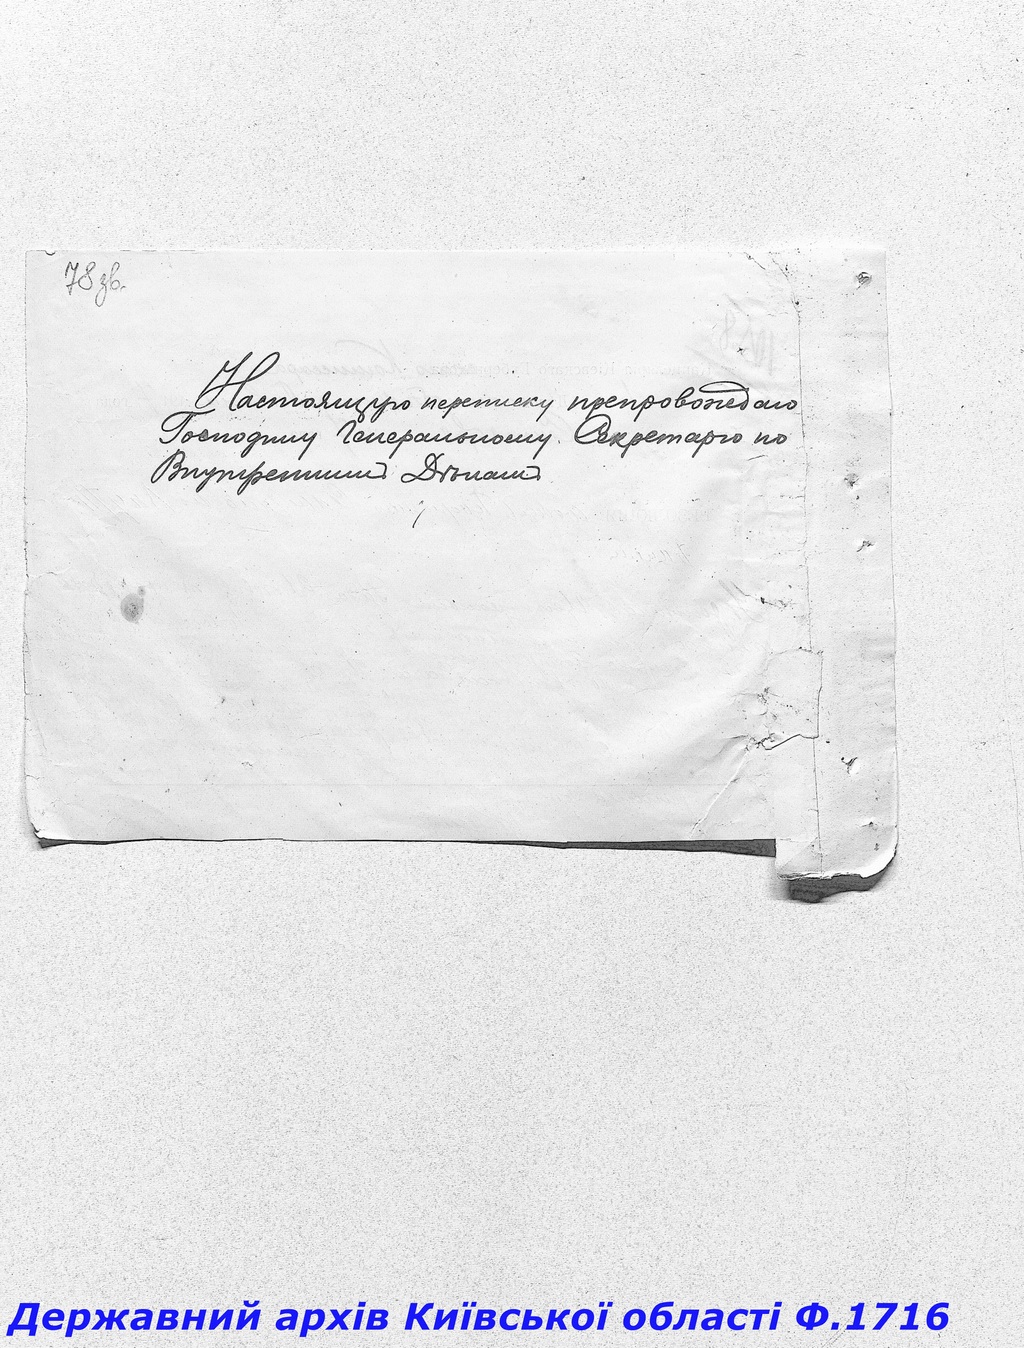 78 зв.
Настоящую переписку препровождаю
Господину Генеральному Секретарю по
Внутреннимъ Дѣламъ
Державний архів Київської області Ф.1716